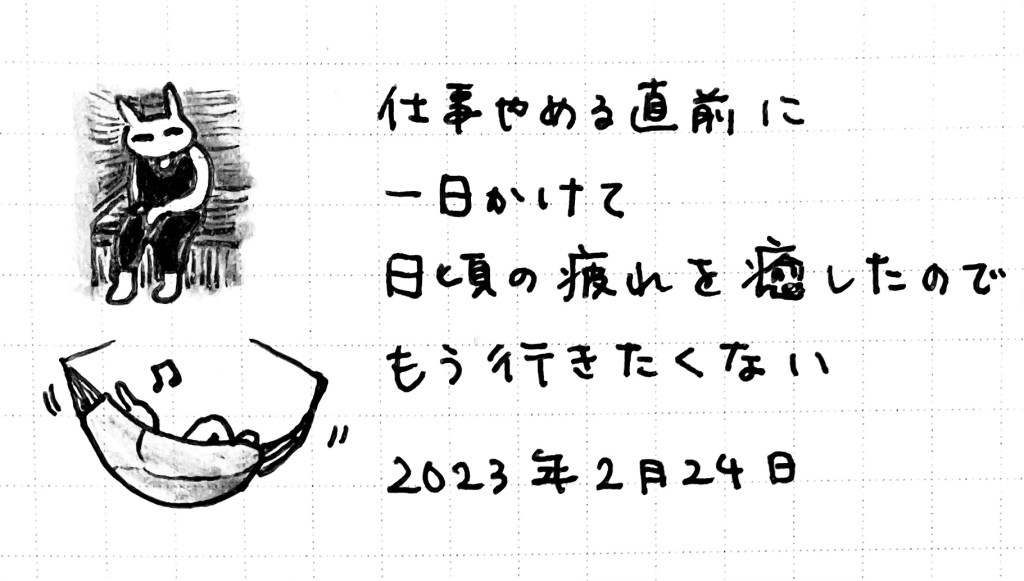 仕事やめる直前に
一日かけて
日頃の疲れを癒したので
もう行きたくない
2023年2月24日